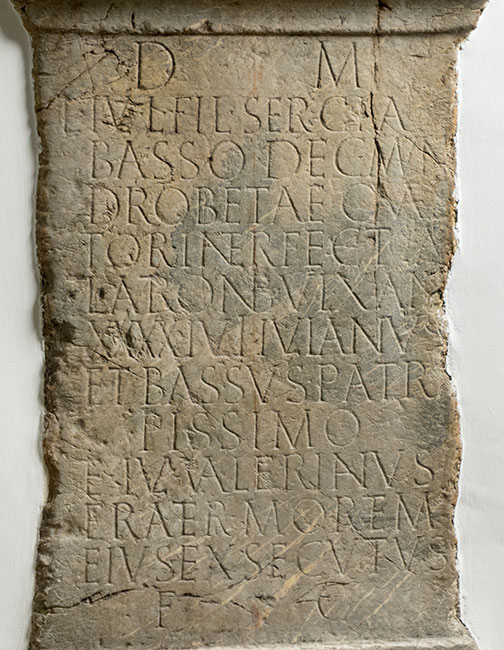 D M
L IVL L FIL SERGIA
BASSO DEC M
DROBETAE QV
TORI INTERFECT A
LATRONIB VIXAN
XXXX IVL IVLIANVS
ET BASSVS PATRI
PISSIMO
ET IVL VALERIANVS
FRATER MORTEM
EIVS EXSECVTVS
F C